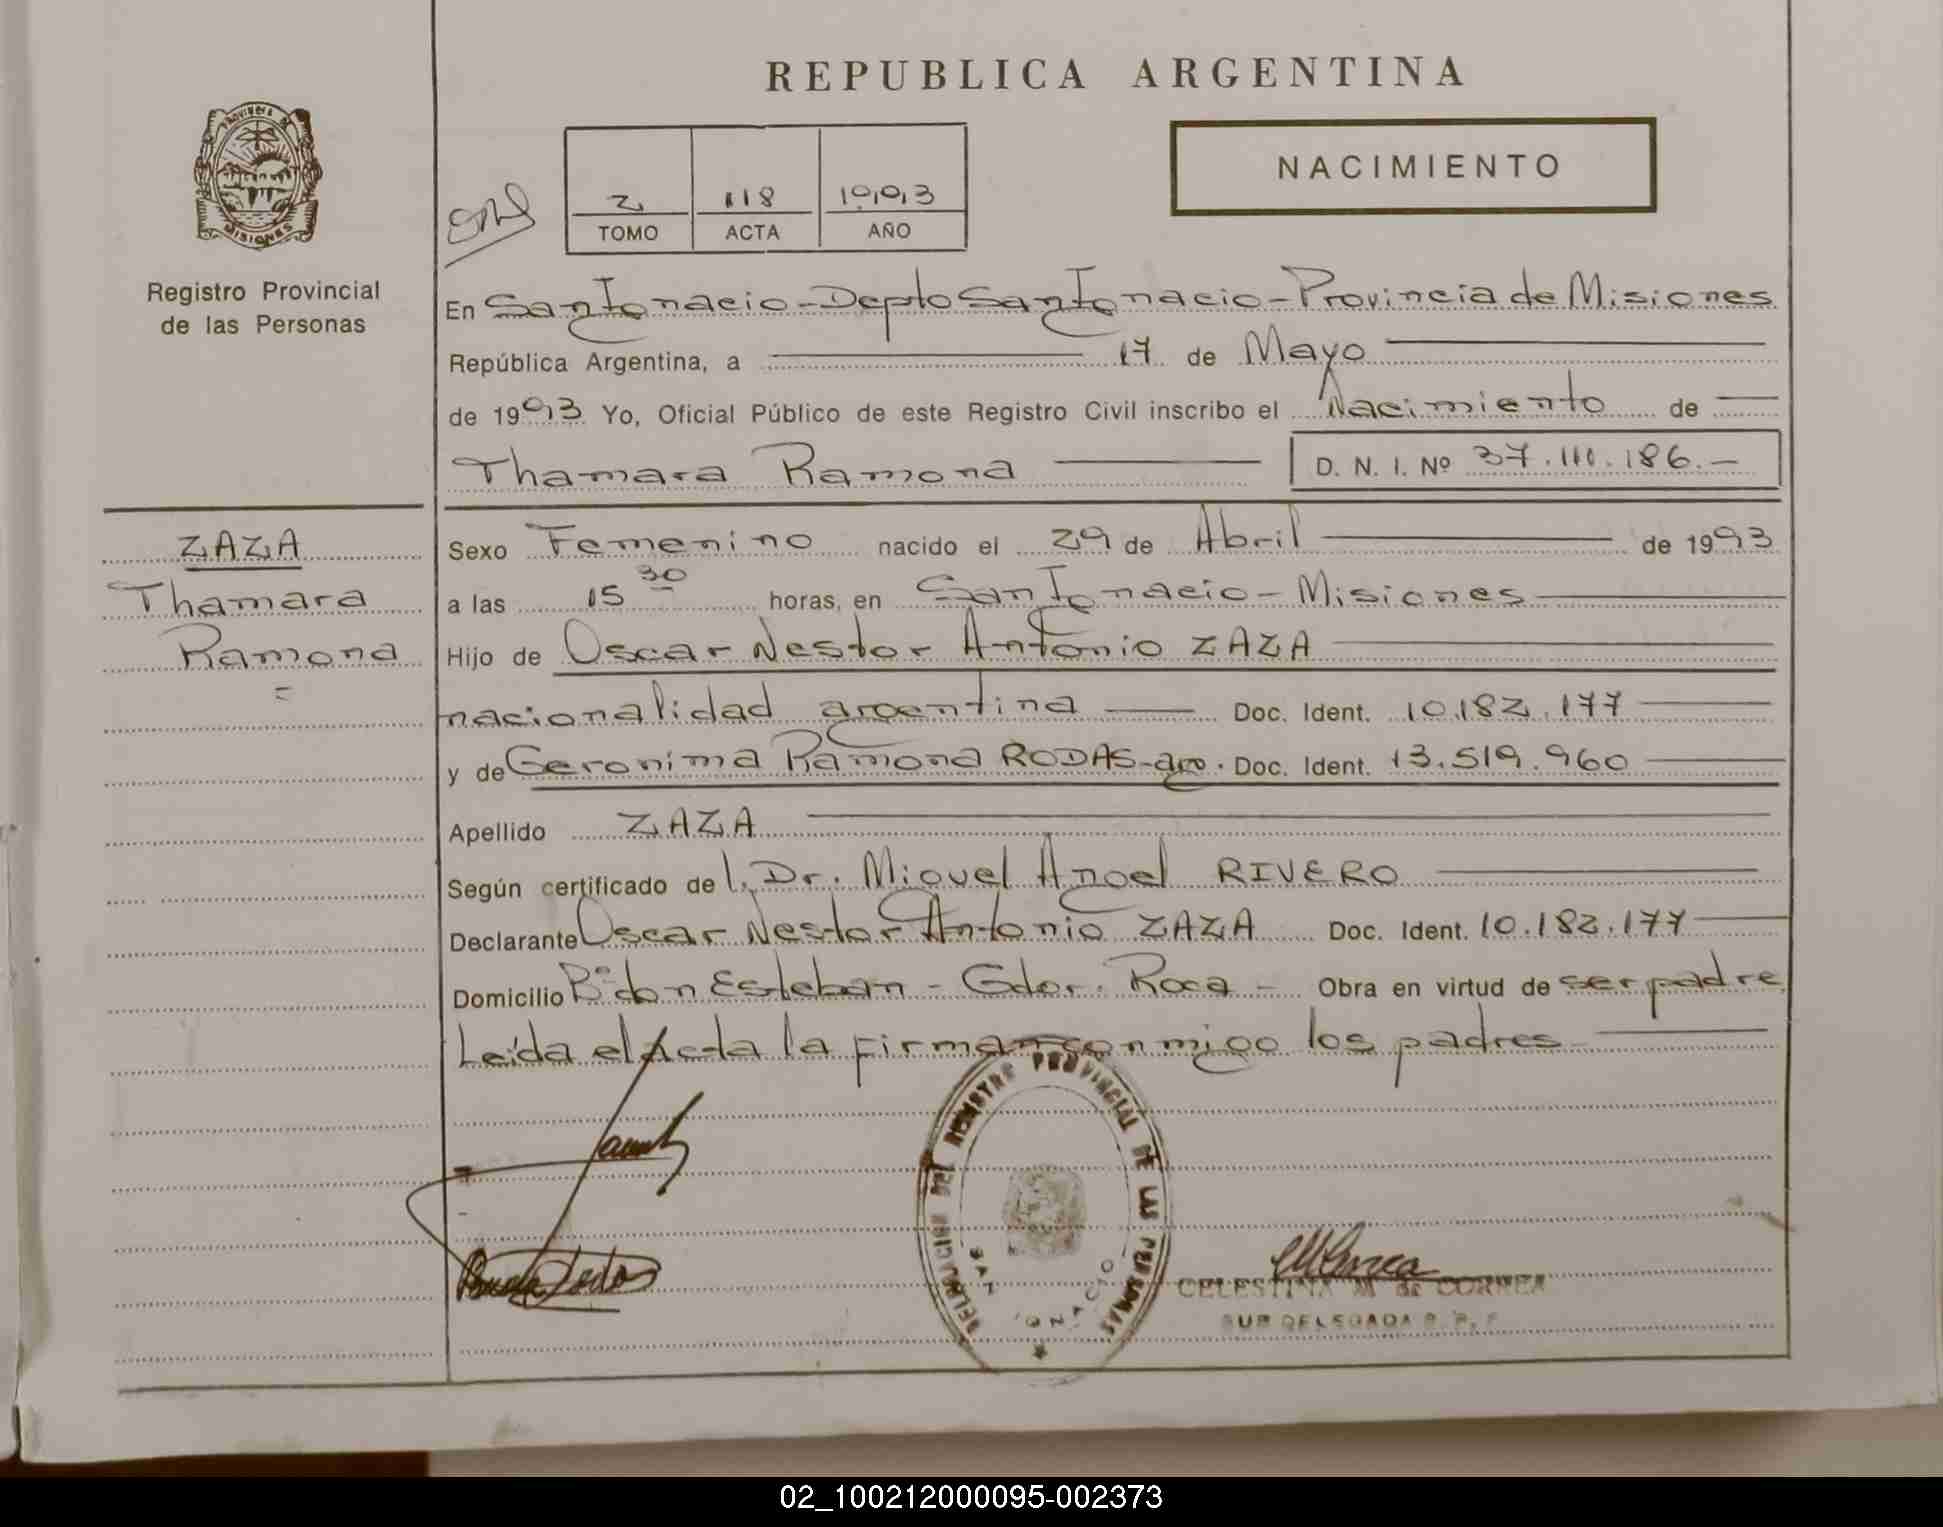 REPUBLICA ARGENTINA
PROVINCIA DE
MISIONES
Registro Provincial
de las Personas
NACIMIENTO
2 118 1993
TOMO ACTA AÑO
En San Ignacio - Depto San Ignacio - Provincia de Misiones
República Argentina, a 17 de Mayo
de 1993 Yo, Oficial Público de este Registro Civil inscribo el Nacimiento de
Thamara Ramona D. N. I. Nº 37.111.186.-
ZAZA
Thamara
Ramona
Sexo Femenino nacido el 29 de Abril de 1993
a las 15 30 horas, en San Ignacio - Misiones
Hijo de Oscar Nestor Antonio ZAZA
nacionalidad argentina Doc. Ident. 10.182.177
y de Geronima Ramona RODAS - arg. Doc. Ident. 13.519.960
Apellido ZAZA
Según certificado de l, Dr. Miguel Angel RIVERO
Declarante Oscar Nestor Antonio ZAZA Doc. Ident. 10.182.177
Domicilio Bº don Esteban - Gdor. Roca - Obra en virtud de ser padre
Leída el acta la firman conmigo los padres
DELEGACION DEL REGISTRO PROVINCIAL DE LAS PERSONAS
SAN IGNACIO
CELESTINA M de CORREA
SUB DELEGADA R. P. P.
02_100212000095-002373